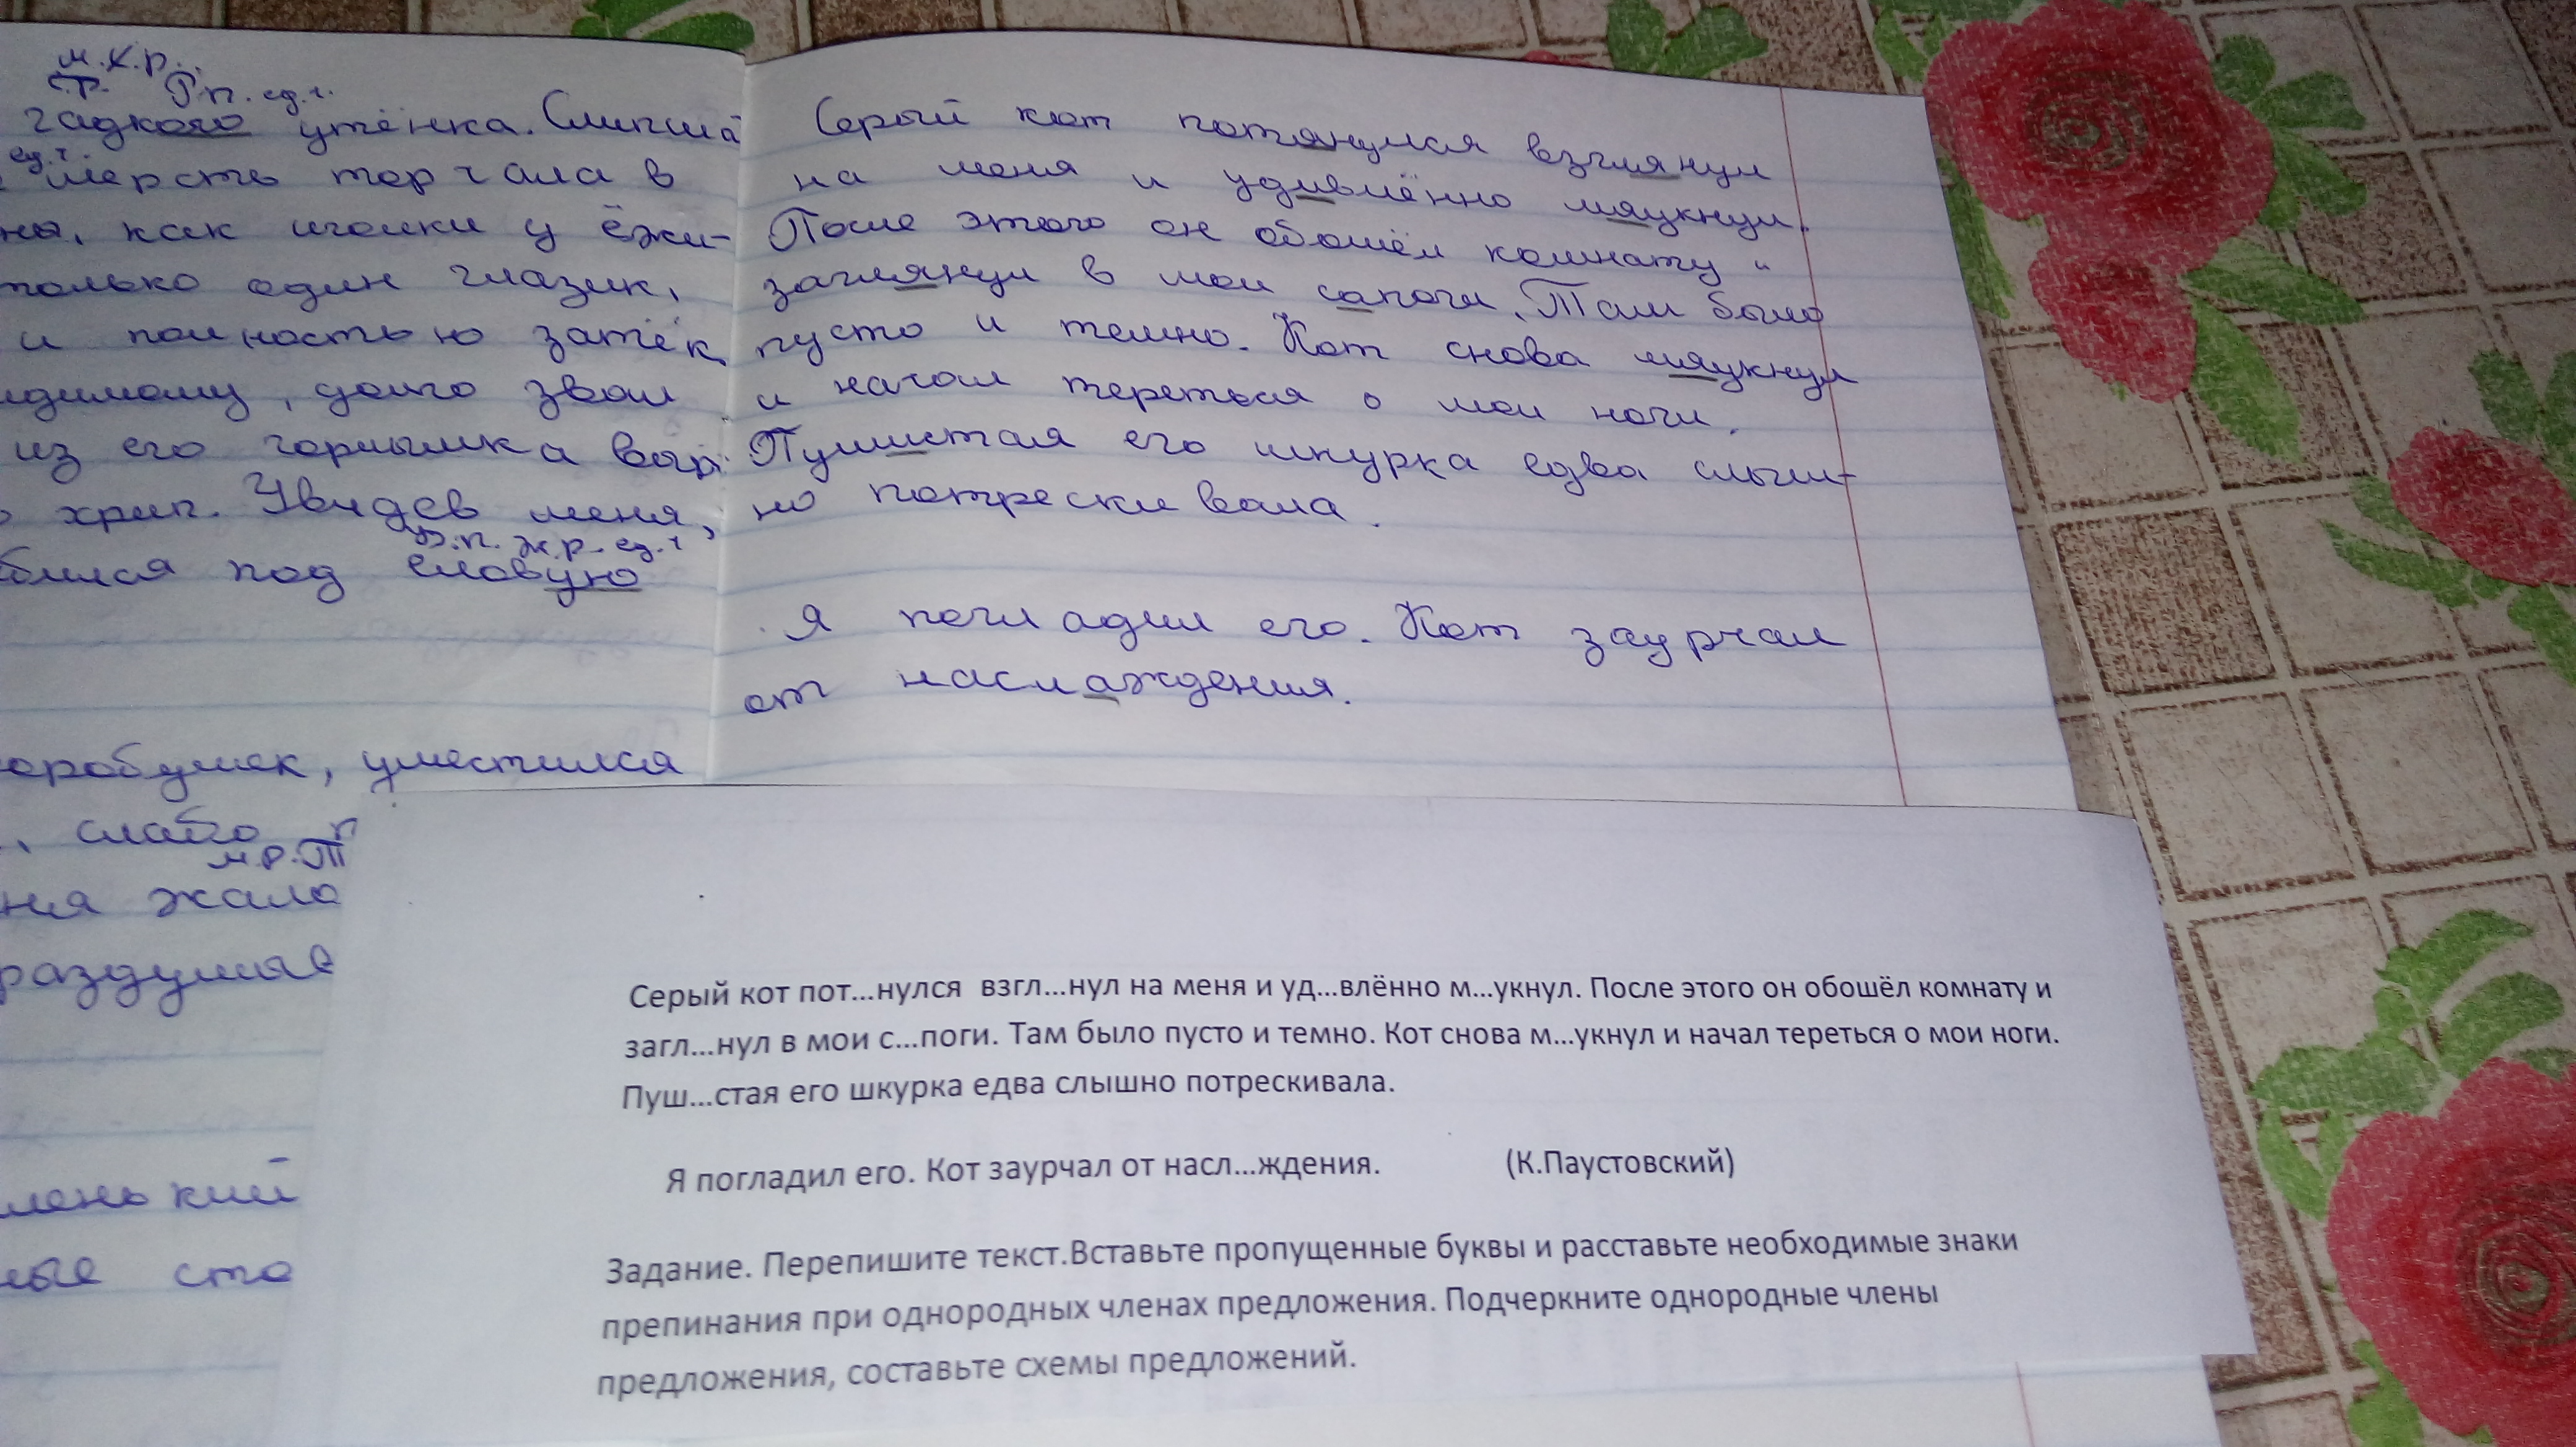 м.к.р..
ср. Рп. ед.ч.
гадкого утёнка. Слипша
ед.ч.
шерсть торчала в
как иголки у ёжи-
только один глазик,
и полностью затёк
долго звал
из его горлышка выр
хрип. Увидев меня,
В.п. ж.р. ед.ч
бился под еловую
оробушек, уместился
, слабо п
м.р. Т
ня жало
раздумыв
ленький
ные сто
Серый кот потянулся взглянул
на меня и удивлённо мяукнул.
После этого он обошёл комнату и
заглянул в мои сапоги. Там было
пусто и темно. Кот снова мяукнул
и начал тереться о мои ноги.
Пушистая его шкурка едва слыш-
но потрескивала.
Я погладил его. Кот заурчал
от наслаждения.
Серый кот пот...нулся взгл...нул на меня и уд...влённо м...укнул. После этого он обошёл комнату и
загл...нул в мои с...поги. Там было пусто и темно. Кот снова м...укнул и начал тереться о мои ноги.
Пуш...стая его шкурка едва слышно потрескивала.
Я погладил его. Кот заурчал от насл...ждения. (К.Паустовский)
Задание. Перепишите текст.Вставьте пропущенные буквы и расставьте необходимые знаки
препинания при однородных членах предложения. Подчеркните однородные члены
предложения, составьте схемы предложений.